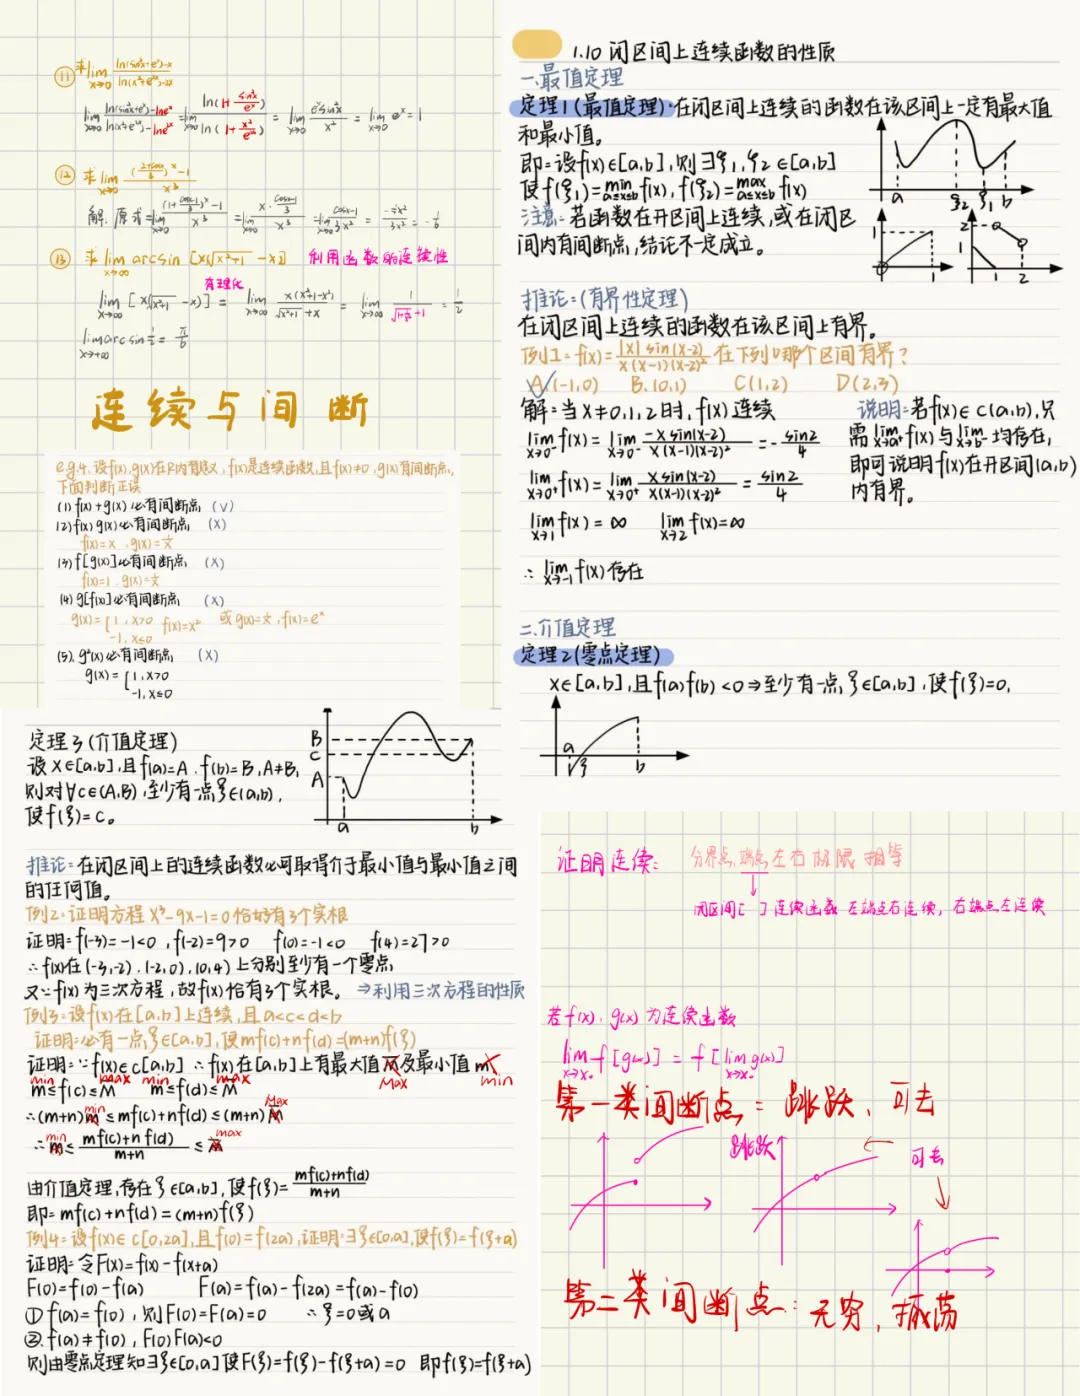 ⑪ 求lim x→0 ln(sin²x+eˣ)-x / ln(x²+e²ˣ)-2x
lim x→0 ln(sin²x+eˣ)-lneˣ / ln(x²+e²ˣ)-lne²ˣ = lim x→0 ln(1+ sin²x/eˣ) / ln(1+ x²/e²ˣ) = lim x→0 eˣsin²x / x² = lim x→0 eˣ = 1
⑫ 求 lim x→0 ((2+cosx)/3)ˣ -1 / x³
解. 原式 = lim x→0 (1+ (cosx-1)/3)ˣ -1 / x³ = lim x→0 x· (cosx-1)/3 / x³ = lim x→0 cosx-1 / 3x² = -½x² / 3x² = -1/6
⑬ 求 lim x→∞ arcsin [x√x²+1 -x²] 利用函数的连续性
有理化
lim x→∞ [x(√x²+1 -x)] = lim x→∞ x(x²+1-x²) / √x²+1 +x = lim x→∞ 1 / √1+1/x² +1 = 1/2
lim x→+∞ arcsin ½ = π/6
连续与间断
e.g.4. 设f(x),g(x)在R内有定义,f(x)是连续函数,且f(x)≠0,g(x)有间断点,
下面判断正误
(1) f(x)+g(x) 必有间断点 (√)
(2) f(x) g(x) 必有间断点 (×)
f(x)=x ,g(x)=1/x
(3) f[g(x)]必有间断点 (×)
f(x)=1 . g(x)=1/x
(4) g[f(x)]必有间断点 (×)
g(x)={ 1, x>0 f(x)=x² 或 g(x)=1/x ,f(x)=eˣ
-1, x≤0
(5). g²(x)必有间断点 (×)
g(x)={ 1, x>0
-1, x≤0
1.10 闭区间上连续函数的性质
一.最值定理
定理1(最值定理):在闭区间上连续的函数在该区间上一定有最大值
和最小值。
即=设f(x)∈[a,b],则∃ξ1,ξ2∈[a,b]
使f(ξ1)=min a≤x≤b f(x), f(ξ2)=max a≤x≤b f(x)
a ξ2 ξ1 b
注意:若函数在开区间上连续,或在闭区
间内有间断点,结论不一定成立。
1 1
2 1 1 2
推论=(有界性定理)
在闭区间上连续的函数在该区间上有界。
例1=f(x)= |x|sin(x-2) / x(x-1)(x-2)² 在下列哪个区间有界?
A.(-1,0) B.(0,1) C(1,2) D(2,3)
解=当x≠0,1,2时,f(x)连续
lim x→0⁻ f(x)= lim x→0⁻ -x sin(x-2) / x(x-1)(x-2)² = - sin2/4
lim x→0⁺ f(x)= lim x→0⁺ x sin(x-2) / x(x-1)(x-2)² = sin2/4
lim x→1 f(x)=∞ lim x→2 f(x)=∞
∴ lim x→-1 f(x)存在
说明=若f(x)∈C(a,b),只
需 lim x→a⁺ f(x)与 lim x→b⁻ 均存在,
即可说明f(x)在开区间(a,b)
内有界。
二.介值定理
定理2(零点定理)
x∈[a,b],且f(a)f(b)<0⇒至少有一点ξ∈[a,b],使f(ξ)=0.
a ξ b
定理3(介值定理)
设x∈[a,b],且f(a)=A.f(b)=B,A≠B,
则对∀c∈(A,B),至少有一点ξ∈(a,b),
使f(ξ)=c。
B
C
A
a b
推论=在闭区间上的连续函数必可取得介于最小值与最小值之间
的任何值。
例2=证明方程 x³-9x-1=0恰好有3个实根
证明=f(-3)=-1<0 ,f(-2)=9>0 f(0)=-1<0 f(4)=27>0
∴f(x)在(-3,-2).(-2,0).(0,4)上分别至少有一个零点
又∵f(x)为三次方程,故f(x)恰有3个实根。⇒利用三次方程的性质
例3=设f(x)在[a,b]上连续,且a<c<d<b
证明=必有一点ξ∈[a,b],使mf(c)+nf(d)=(m+n)f(ξ)
证明=∵f(x)∈c[a,b] ∴f(x)在[a,b]上有最大值M及最小值m
Max min
min max min max
m≤f(c)≤M m≤f(d)≤M
∴(m+n)m≤mf(c)+nf(d)≤(m+n)M
min Max
∴ m≤ mf(c)+nf(d) / m+n ≤M
min max
由介值定理,存在ξ∈[a,b],使f(ξ)= mf(c)+nf(d) / m+n
即=mf(c)+nf(d)=(m+n)f(ξ)
例4=设f(x)∈c[0,2a],且f(0)=f(2a),证明=∃ξ∈[0,a],使f(ξ)=f(ξ+a)
证明=令F(x)=f(x)-f(x+a)
F(0)=f(0)-f(a) F(a)=f(a)-f(2a)=f(a)-f(0)
① f(a)=f(0),则F(0)=F(a)=0 ∴ξ=0或a
②. f(a)≠f(0),F(0)F(a)<0
则由零点定理知∃ξ∈[0,a]使F(ξ)=f(ξ)-f(ξ+a)=0 即f(ξ)=f(ξ+a)
证明连续: 分界点,端点左右极限相等
闭区间[ ]连续函数 左端点右连续, 右端点左连续
若f(x),g(x)为连续函数
lim x→x₀ f[g(x)] = f[lim x→x₀ g(x)]
第一类间断点=跳跃、可去
跳跃
可去
第二类间断点:无穷,振荡